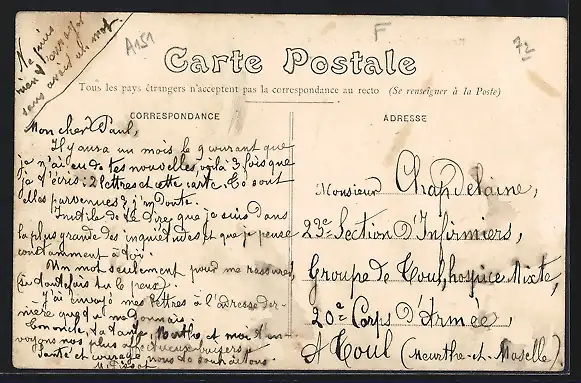 Ne puis
rien t'envoyer
sans avoir un mot
A151
F
72
Carte Postale
Tous les pays étrangers n'acceptent pas la correspondance au recto (Se renseigner à la Poste)
CORRESPONDANCE
Mon cher Paul,
Il y aura un mois le 9 courant que
je n'ai eu de tes nouvelles, voilà 3 fois que
je t'écris: 2 lettres et cette carte. Te sont
elles parvenues? j'en doute.
Inutile de te dire que je suis dans
la plus grande des inquiétudes et que je pense
constamment à toi!
Un mot seulement pour me rassurer,
(si toutefois tu le peux).
J'ai envoyé mes lettres à l'adresse der-
nière que tu me donnais.
ta tante, Marthe et moi t'en-
voyons nos plus affectueux baisers
Santé et courage, nous te souhaitons.
ADRESSE
Monsieur Chandelaine,
23e Section d'Infirmiers,
Groupe de Toul, hospice Mixte,
20e Corps d'Armée,
A Toul (Meurthe-et-Moselle).